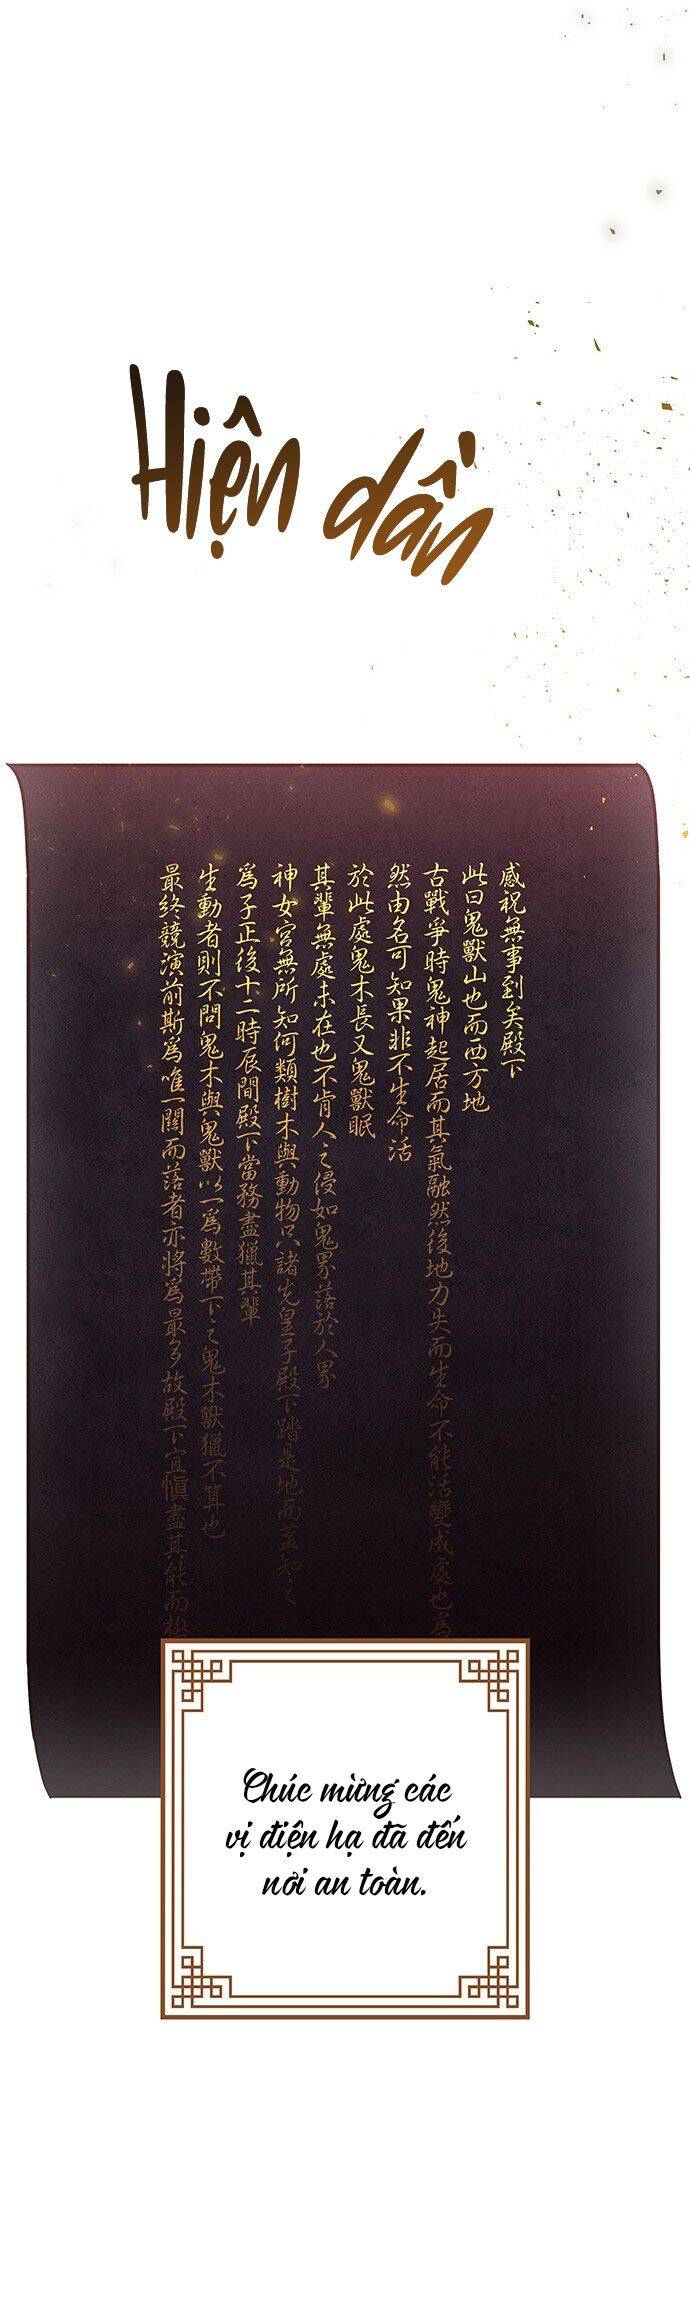 Hiện dần
感祝無事到矣殿下
此曰鬼獸山也而西方地
古戰爭時鬼神起居而其氣融然後地力失而生命不能活變成處也爲
然由名可知果非不生命活
於此處鬼木長又鬼獸眠
其輩無處未在也不肯人之侵如鬼界落於人界
神女宮無所知何類樹木與動物只諸先皇子殿下踏是地而蓋知之
爲子正後十二時辰間殿下當務盡獵其輩
生動者則不問鬼木與鬼獸以一爲數帶下之鬼木獸獵不算也
最終競演前斯爲唯一關而落者亦將爲最多故殿下宜愼盡其能而
Chúc mừng các
vị điện hạ đã đến
nơi an toàn.